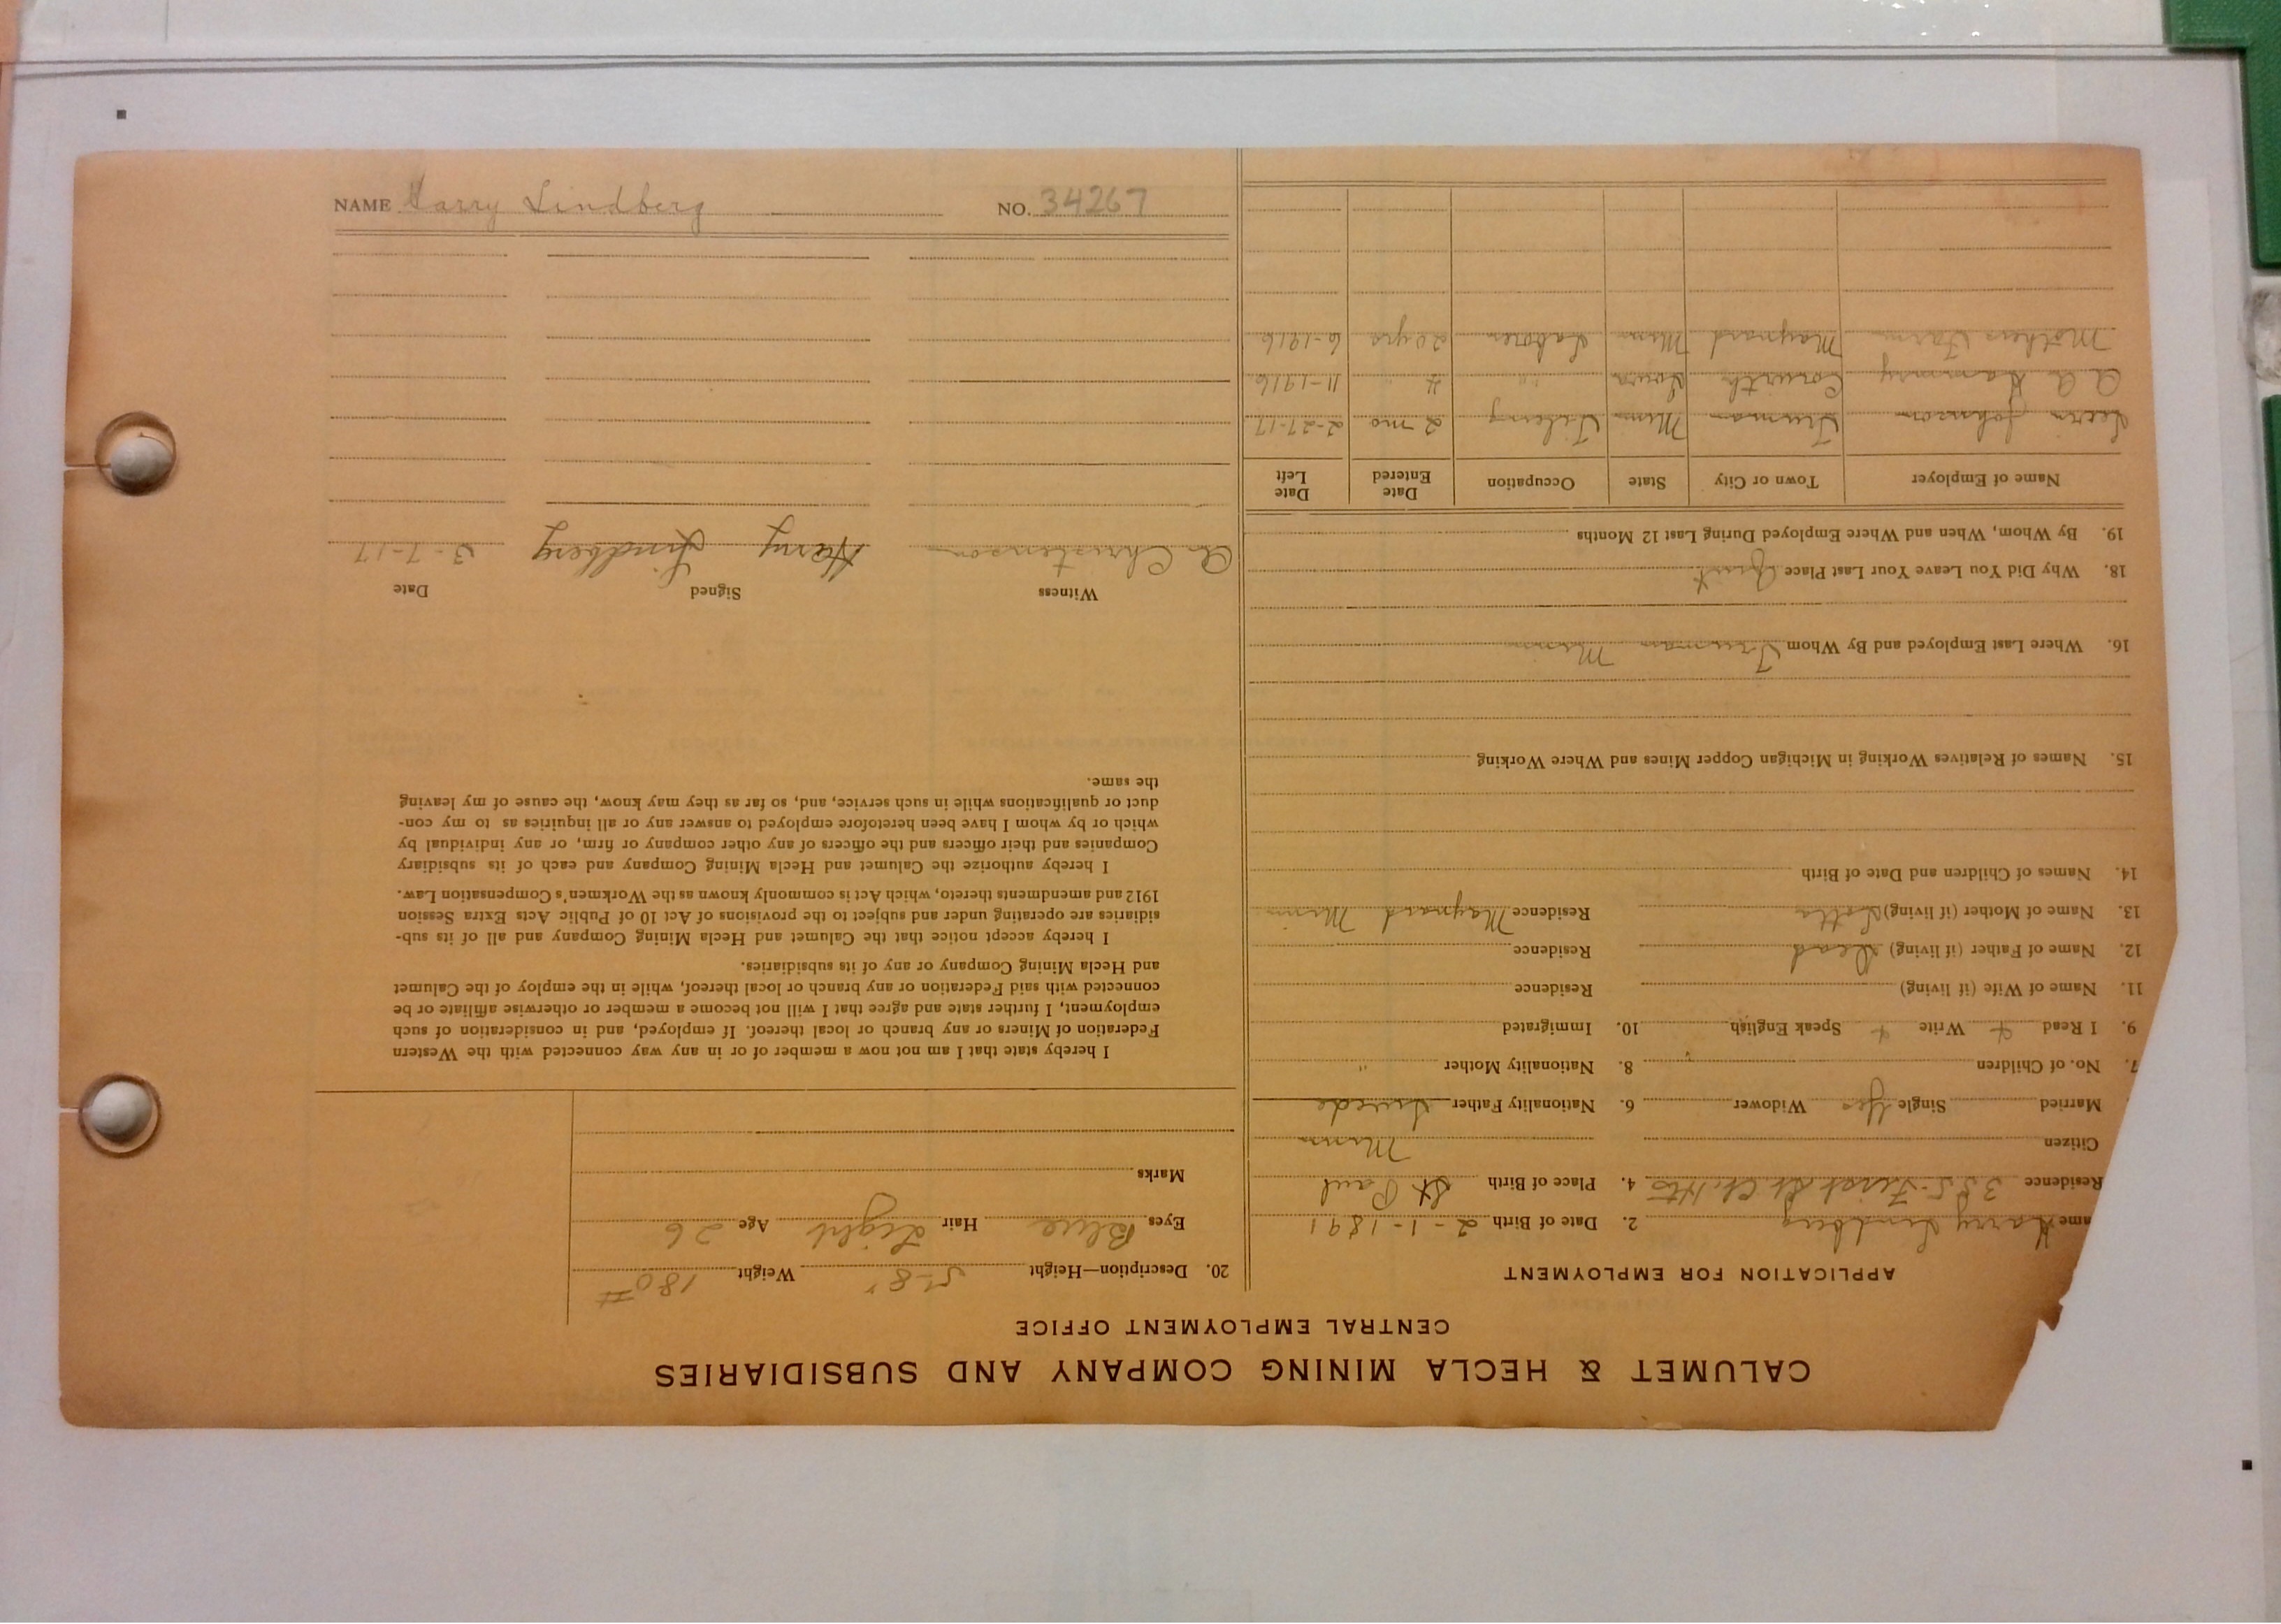 NAME Harry Lindberg NO. 34267
CALUMET & HECLA MINING COMPANY AND SUBSIDIARIES
CENTRAL EMPLOYMENT OFFICE
APPLICATION FOR EMPLOYMENT
ame Harry Lindberg 2. Date of Birth 2-1-1891
Residence 335-First St 4. Place of Birth St Paul
Citizen Minn
Married Single Yes Widower 6. Nationality Father Swede
7. No. of Children 8. Nationality Mother "
9. I Read Write Speak English 10. Immigrated
11. Name of Wife (if living) Residence
12. Name of Father (if living) Dead Residence
13. Name of Mother (if living) Lotta Residence Maynard Minn
14. Names of Children and Date of Birth
15. Names of Relatives Working in Michigan Copper Mines and Where Working
16. Where Last Employed and By Whom Truman Minn
18. Why Did You Leave Your Last Place Quit
19. By Whom, When and Where Employed During Last 12 Months
Name of Employer Town or City State Occupation Date Entered Date Left
Johnson Truman Minn 2 mo 2-27-17
Corwith Iowa " 4 " 11-1916
Mothers Farm Maynard Minn Laborer 20 yrs 6-1916
20. Description—Height 5-8" Weight 180#
Eyes Blue Hair Light Age 26
Marks
I hereby state that I am not now a member of or in any way connected with the Western
Federation of Miners or any branch or local thereof. If employed, and in consideration of such
employment, I further state and agree that I will not become a member or otherwise affiliate or be
connected with said Federation or any branch or local thereof, while in the employ of the Calumet
and Hecla Mining Company or any of its subsidiaries.
I hereby accept notice that the Calumet and Hecla Mining Company and all of its sub-
sidiaries are operating under and subject to the provisions of Act 10 of Public Acts Extra Session
1912 and amendments thereto, which Act is commonly known as the Workmen's Compensation Law.
I hereby authorize the Calumet and Hecla Mining Company and each of its subsidiary
Companies and their officers and the officers of any other company or firm, or any individual by
which or by whom I have been heretofore employed to answer any or all inquiries as to my con-
duct or qualifications while in such service, and, so far as they may know, the cause of my leaving
the same.
Witness Signed Date
A Christenson Harry Lindberg 3-7-17